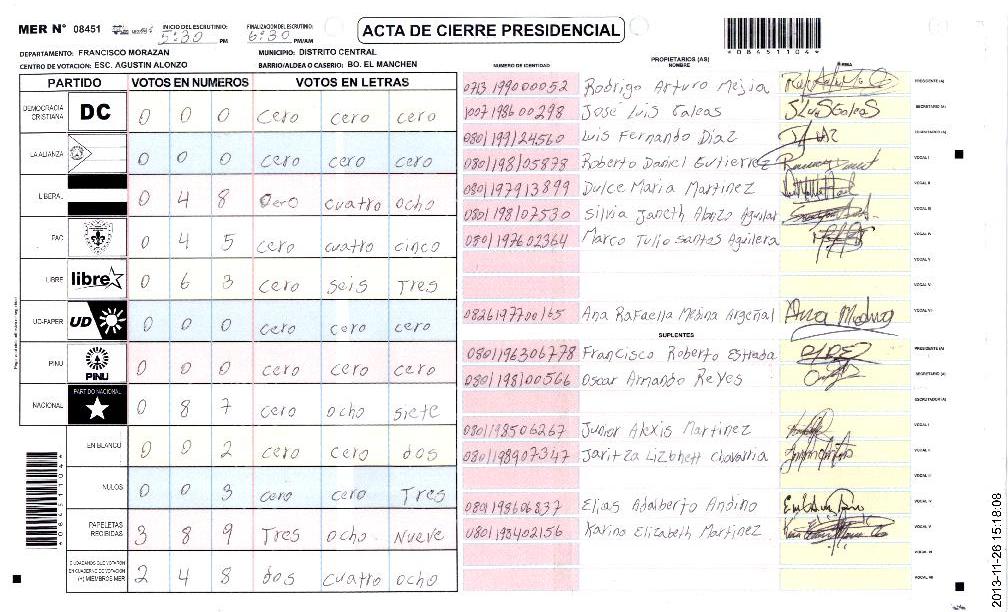 MER N° 08451
INICIO DEL ESCRUTINIO: 5:30 PM
FINALIZACION DEL ESCRUTINIO: 6:30 PM/AM
ACTA DE CIERRE PRESIDENCIAL
*08451104*
DEPARTAMENTO: FRANCISCO MORAZAN
MUNICIPIO: DISTRITO CENTRAL
CENTRO DE VOTACION: ESC. AGUSTIN ALONZO
BARRIO/ALDEA O CASERIO: BO. EL MANCHEN
PARTIDO VOTOS EN NUMEROS VOTOS EN LETRAS
DEMOCRACIA CRISTIANA DC 0 0 0 cero cero cero
LA ALIANZA 0 0 0 cero cero cero
LIBERAL 0 4 8 cero cuatro ocho
PAC 0 4 5 cero cuatro cinco
LIBRE libre 0 6 3 cero seis Tres
UD-FAPER UD 0 0 0 cero cero cero
PINU PINU 0 0 0 cero cero cero
NACIONAL PARTIDO NACIONAL 0 8 7 cero ocho siete
EN BLANCO 0 0 2 cero cero dos
NULOS 0 0 3 cero cero Tres
PAPELETAS RECIBIDAS 3 8 9 Tres ocho Nueve
CIUDADANOS QUE VOTARON
EN CUADERNO DE VOTACION
(+) MIEMBROS MER 2 4 8 dos cuatro ocho
*08451104*
NUMERO DE IDENTIDAD
PROPIETARIOS (AS)
NOMBRE
FIRMA
0713 199000052 Rodrigo Arturo Mejia PRESIDENTE (A)
1007198600298 Jose Luis Galeas SECRETARIO (A)
0801199124560 Luis Fernando Diaz ESCRUTADOR (A)
0801198105878 Roberto Daniel Gutierrez VOCAL I
0801197913899 Dulce Maria Martinez VOCAL II
0801198107530 Silvia Janeth Alonzo Aguilar VOCAL III
0801197602364 Marco Tulio Santos Aguilera VOCAL IV
VOCAL V
VOCAL V
0826197700165 Ana Rafaella Medina Argeñal Ana Medina VOCAL VI
SUPLENTES
0801196306778 Francisco Roberto Estrada PRESIDENTE (A)
0801198100566 Oscar Armando Reyes SECRETARIO (A)
ESCRUTADOR (A)
0801198506267 Junior Alexis Martinez VOCAL I
0801198907347 Jaritza Lizbhett Chavarria VOCAL II
VOCAL III
0801198606837 Elias Adalberto Andino VOCAL IV
0801193402156 Karina Elizabeth Martinez VOCAL V
VOCAL VI
VOCAL VII
2013-11-26 15:18:08